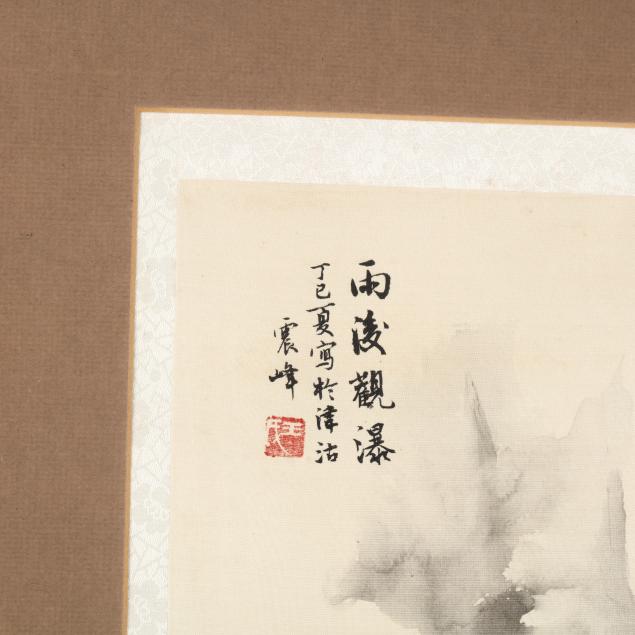 雨後觀瀑
丁巳夏寫於津沽
震峰